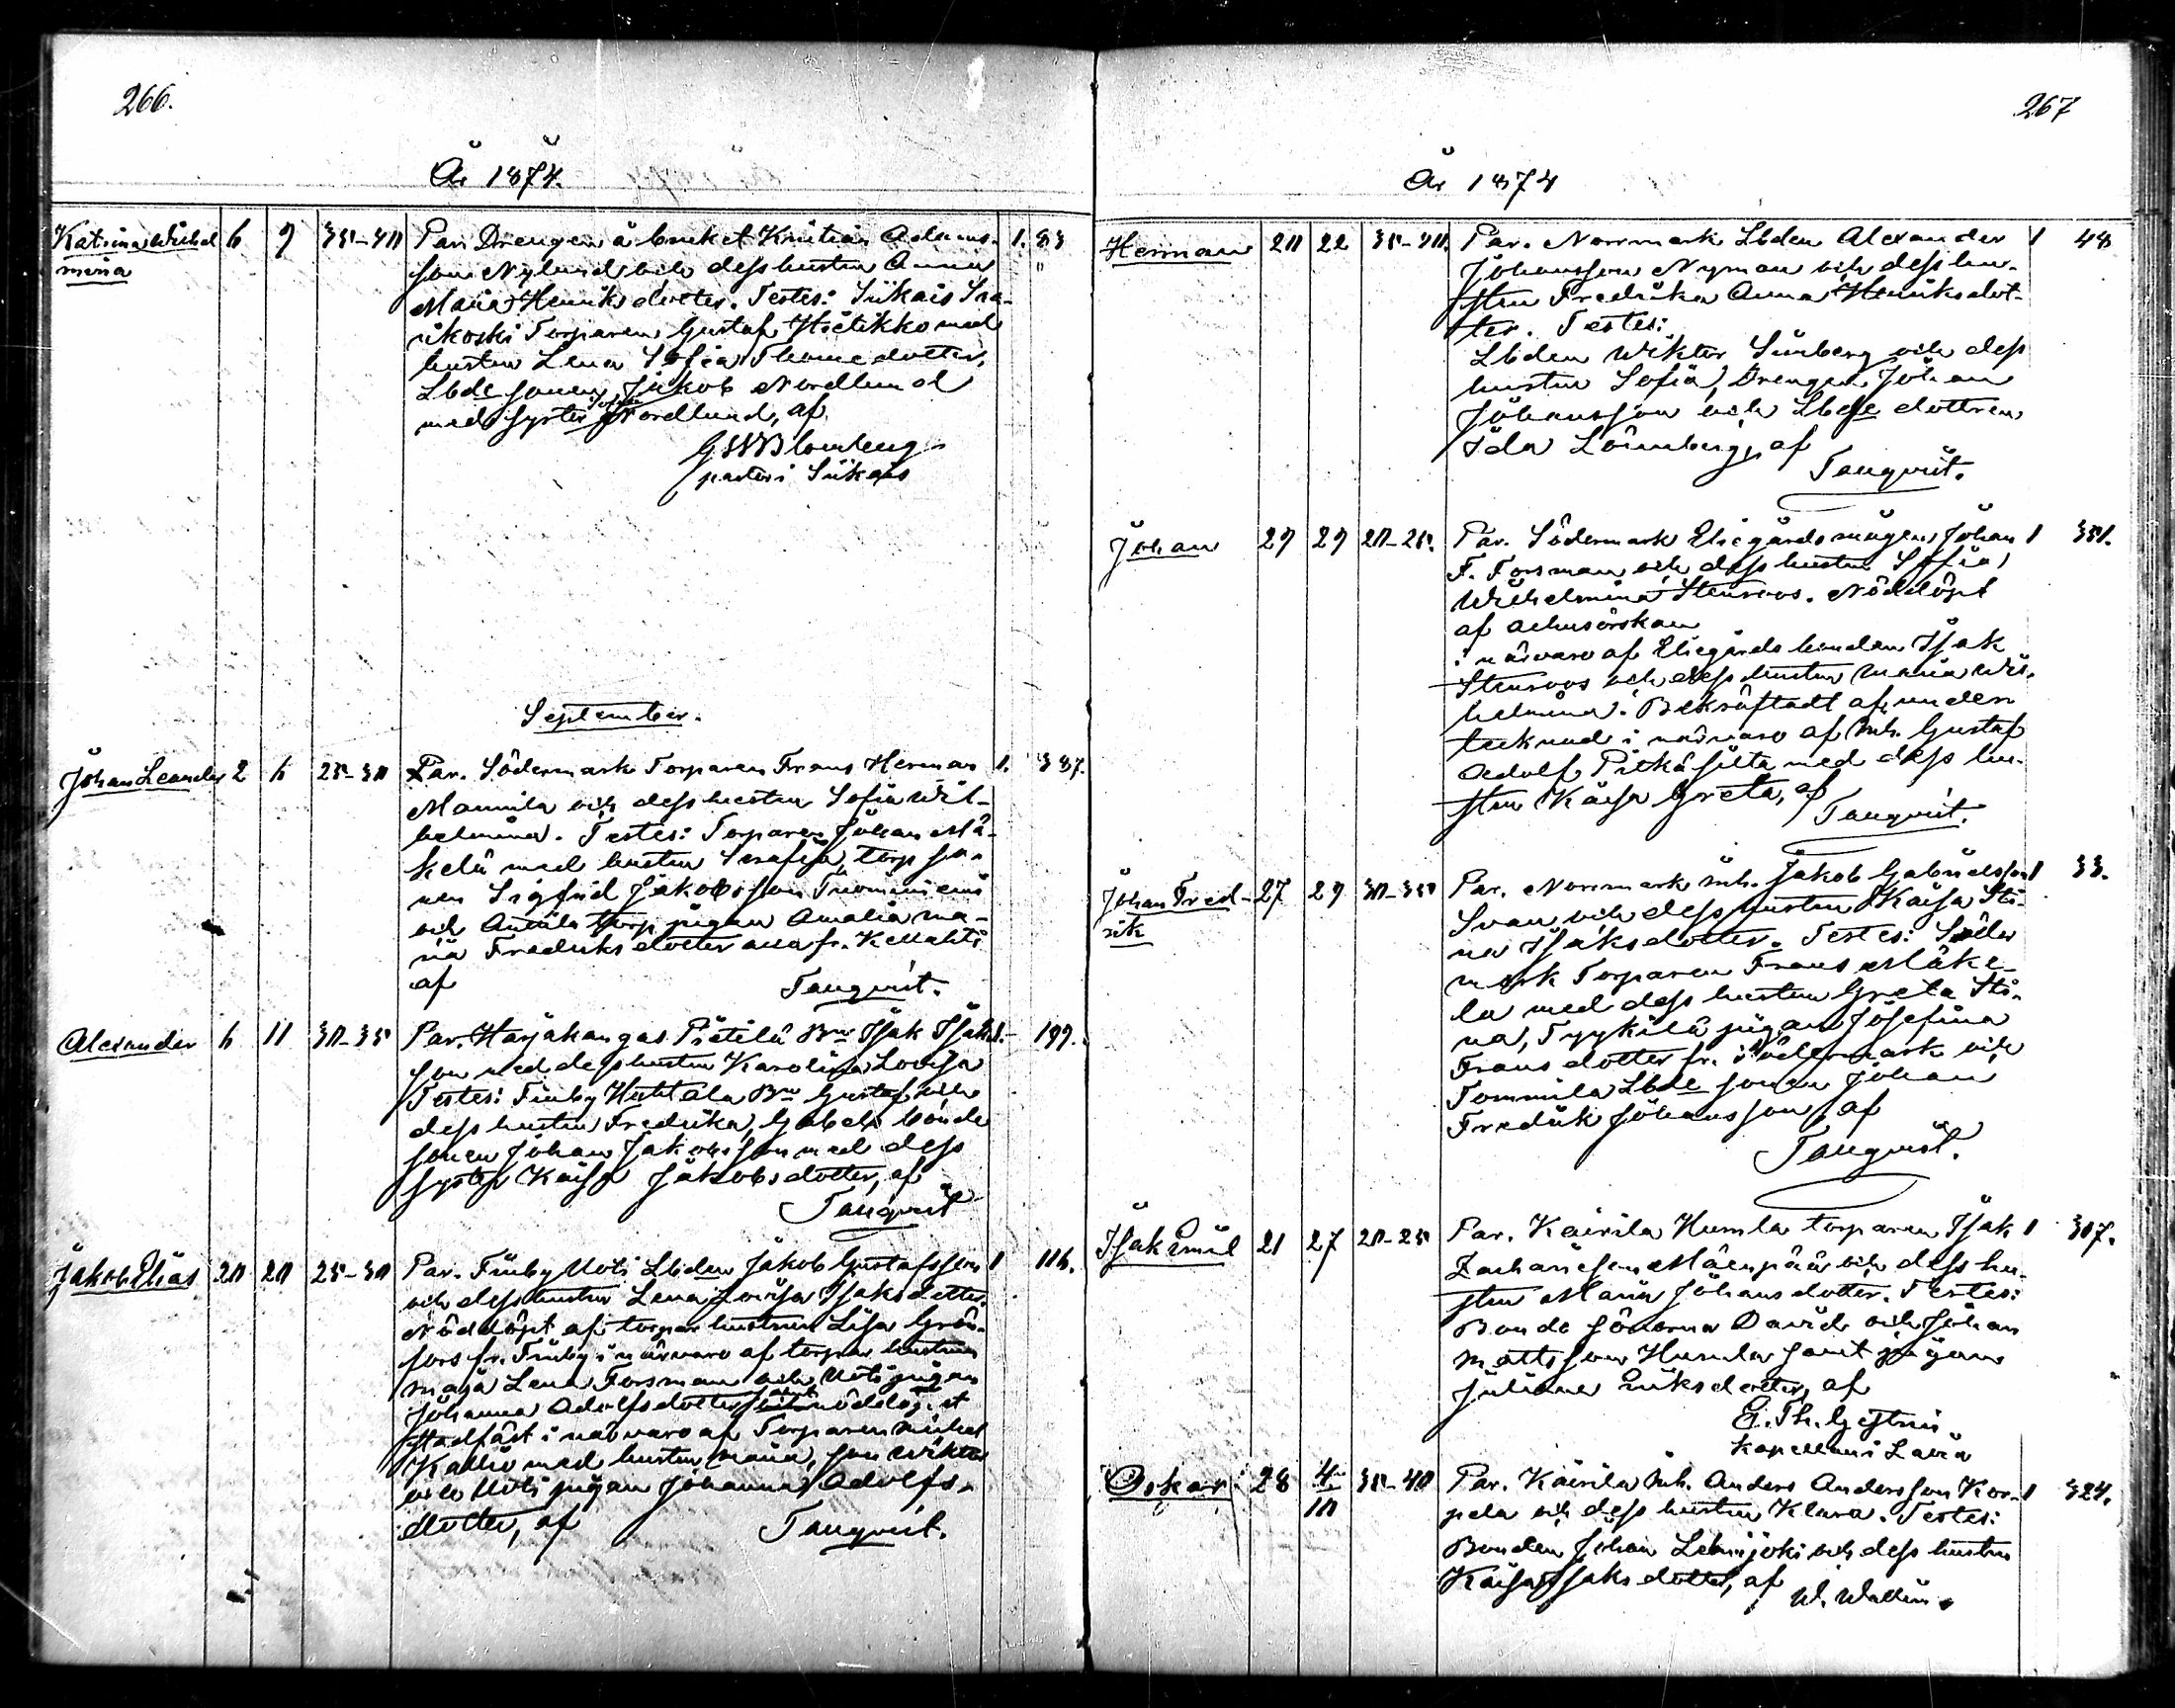 266.
År 1874.
Katrina Wilhel 6 9 35-40 Par. Drengen å bruket Kristian Adams- 1. 83
mina son Nylund och dess hustru Anna
Maria Henriksdotter. Testes: Siikais
Torparen Gustaf Hietikko med
hustru Lena Sofia Thomedotter,
Lbde sonen Jakob Nordlund
med syster Nordlund, af
Blomberg
pastor i Siikais
September.
Johan Leander 2 6 25-30 Par. Södermark Torparen Frans Herman 1. 337.
Mannila och dess hustru Sofia Wil-
helmina. Testes: Torparen Johan Mä-
kelä med hustru Serafia, torp so-
nen Sigfrid Jakobsson Tuominiemi
och Anttila torp pigan Amalia Ma-
ria Fredriksdotter alla fr. Kellahti
af Tanqvist.
Alexander 6 11 30-35 Par. Harjakangas Pietilä Bn Isak Isaks- 1. 199.
son med dess hustru Karolina Lovisa
Testes: Finby Huhtala Bn Gustaf och
dess hustru Fredrika, Gabels bonde
sonen Johan Jakobsson med dess
syster Kaisa Jakobsdotter, af
Tanqvist
Jakob Elias 20 20 25-30 Par. Finby Uoti Lbden Jakob Gustafsson 1 116.
och dess hustru Lena Lovisa Isaksdotter.
Nöddöpt af torpar hustrun Lisa Grön-
fors fr. Finby i närvaro af torpar hustrun
Maja Lena Forsman och Uoti pigan
Johanna Adolfsdotter samt nöddopet
stadfäst i närvaro af Torparen Mikel
Kallio med hustru Maria, son Wiktor
och Uoti pigan Johanna Adolfs-
dotter, af Tanqvist.
267
År 1874
Herman 20 22 35-40. Par. Norrmark Lbden Alexander 1 48
Johansson Nyman och dess hu-
stru Fredrika Anna Henriksdot-
ter. Testes:
Lbden Wiktor Sünberg och dess
hustru Sofia, Drengen Johan
Johansson och Lbde dottren
Ida Lönnberg, af
Tanqvist.
Johan 29 29 20-25. Par. Södermark Eliegårds mågen Johan 1 331.
F. Forsman och dess hustru Sofia
Wilhelmina Stenroos. Nöddöpt
af ackusörskan
i närvaro af Eliegårds bonden Isak
Stenroos och dess hustru Maria Wil-
helmina. Bekräftadt af under
tecknad i närvaro af Inh. Gustaf
Adolf Pitkäsilta med dess hu-
stru Kaisa Greta, af
Tanqvist.
Johan Fred- 27 29 30-35 Par. Norrmark Inh. Jakob Gabrielsson 1 33.
rik Svan och dess hustru Kaisa Sti-
na Isaksdotter. Testes: Söder
mark Torparen Frans Mäke-
lä med dess hustru Greta Sti-
na, Tyykilä pigan Josefina
Fransdotter fr. Södermark och
Tommila Lbde sonen Johan
Fredrik Johansson, af
Tanqvist.
Isak Emil 21 27 20-25 Par. Kairila Humla torparen Isak 1 307.
Zachariesson Mäenpää och dess hu-
stru Maria Johansdotter. Testes:
Bonde sönerna David och Johan
Mattsson Humla samt pigan
Juliana Eriksdotter, af
E. Th. Gestrin
kapellan i Lavia
Oskar 28 4/10 35-40 Par. Kairila Inh. Anders Andersson Kor- 1 324.
pela och dess hustru Klara. Testes:
Bonden Johan Leinijoki och dess hustru
Kaisa Isaksdotter, af
W. Wallin.